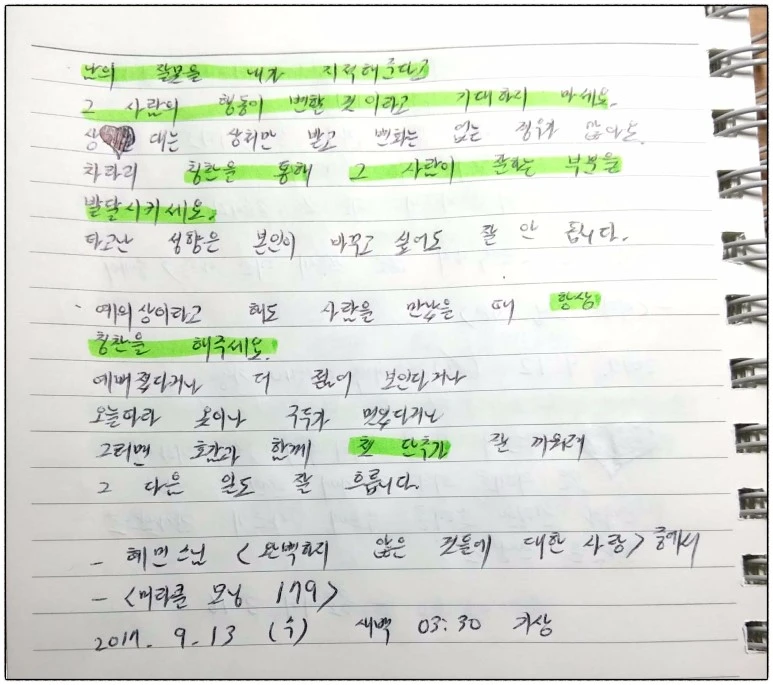 · 남의 잘못을 내가 지적해준다고
그 사람의 행동이 변할 것이라고 기대하지 마세요.
상♥대는 상처만 받고 변화는 없는 경우가 많아요.
차라리 칭찬을 통해 그 사람이 잘하는 부분을
발달시키세요.
타고난 성향은 본인이 바꾸고 싶어도 잘 안 됩니다.
· 예의상이라고 해도 사람을 만났을 때 항상
칭찬을 해주세요.
예뻐졌다거나 더 젊어 보인다거나
오늘따라 옷이나 구두가 멋있다거나
그러면 호감과 함께 첫 단추가 잘 끼워져
그 다음 일도 잘 흐릅니다.
- 혜민스님 <완벽하지 않은 것들에 대한 사랑> 중에서
- <미라클 모닝 179>
2017. 9. 13 (수) 새벽 03:30 기상